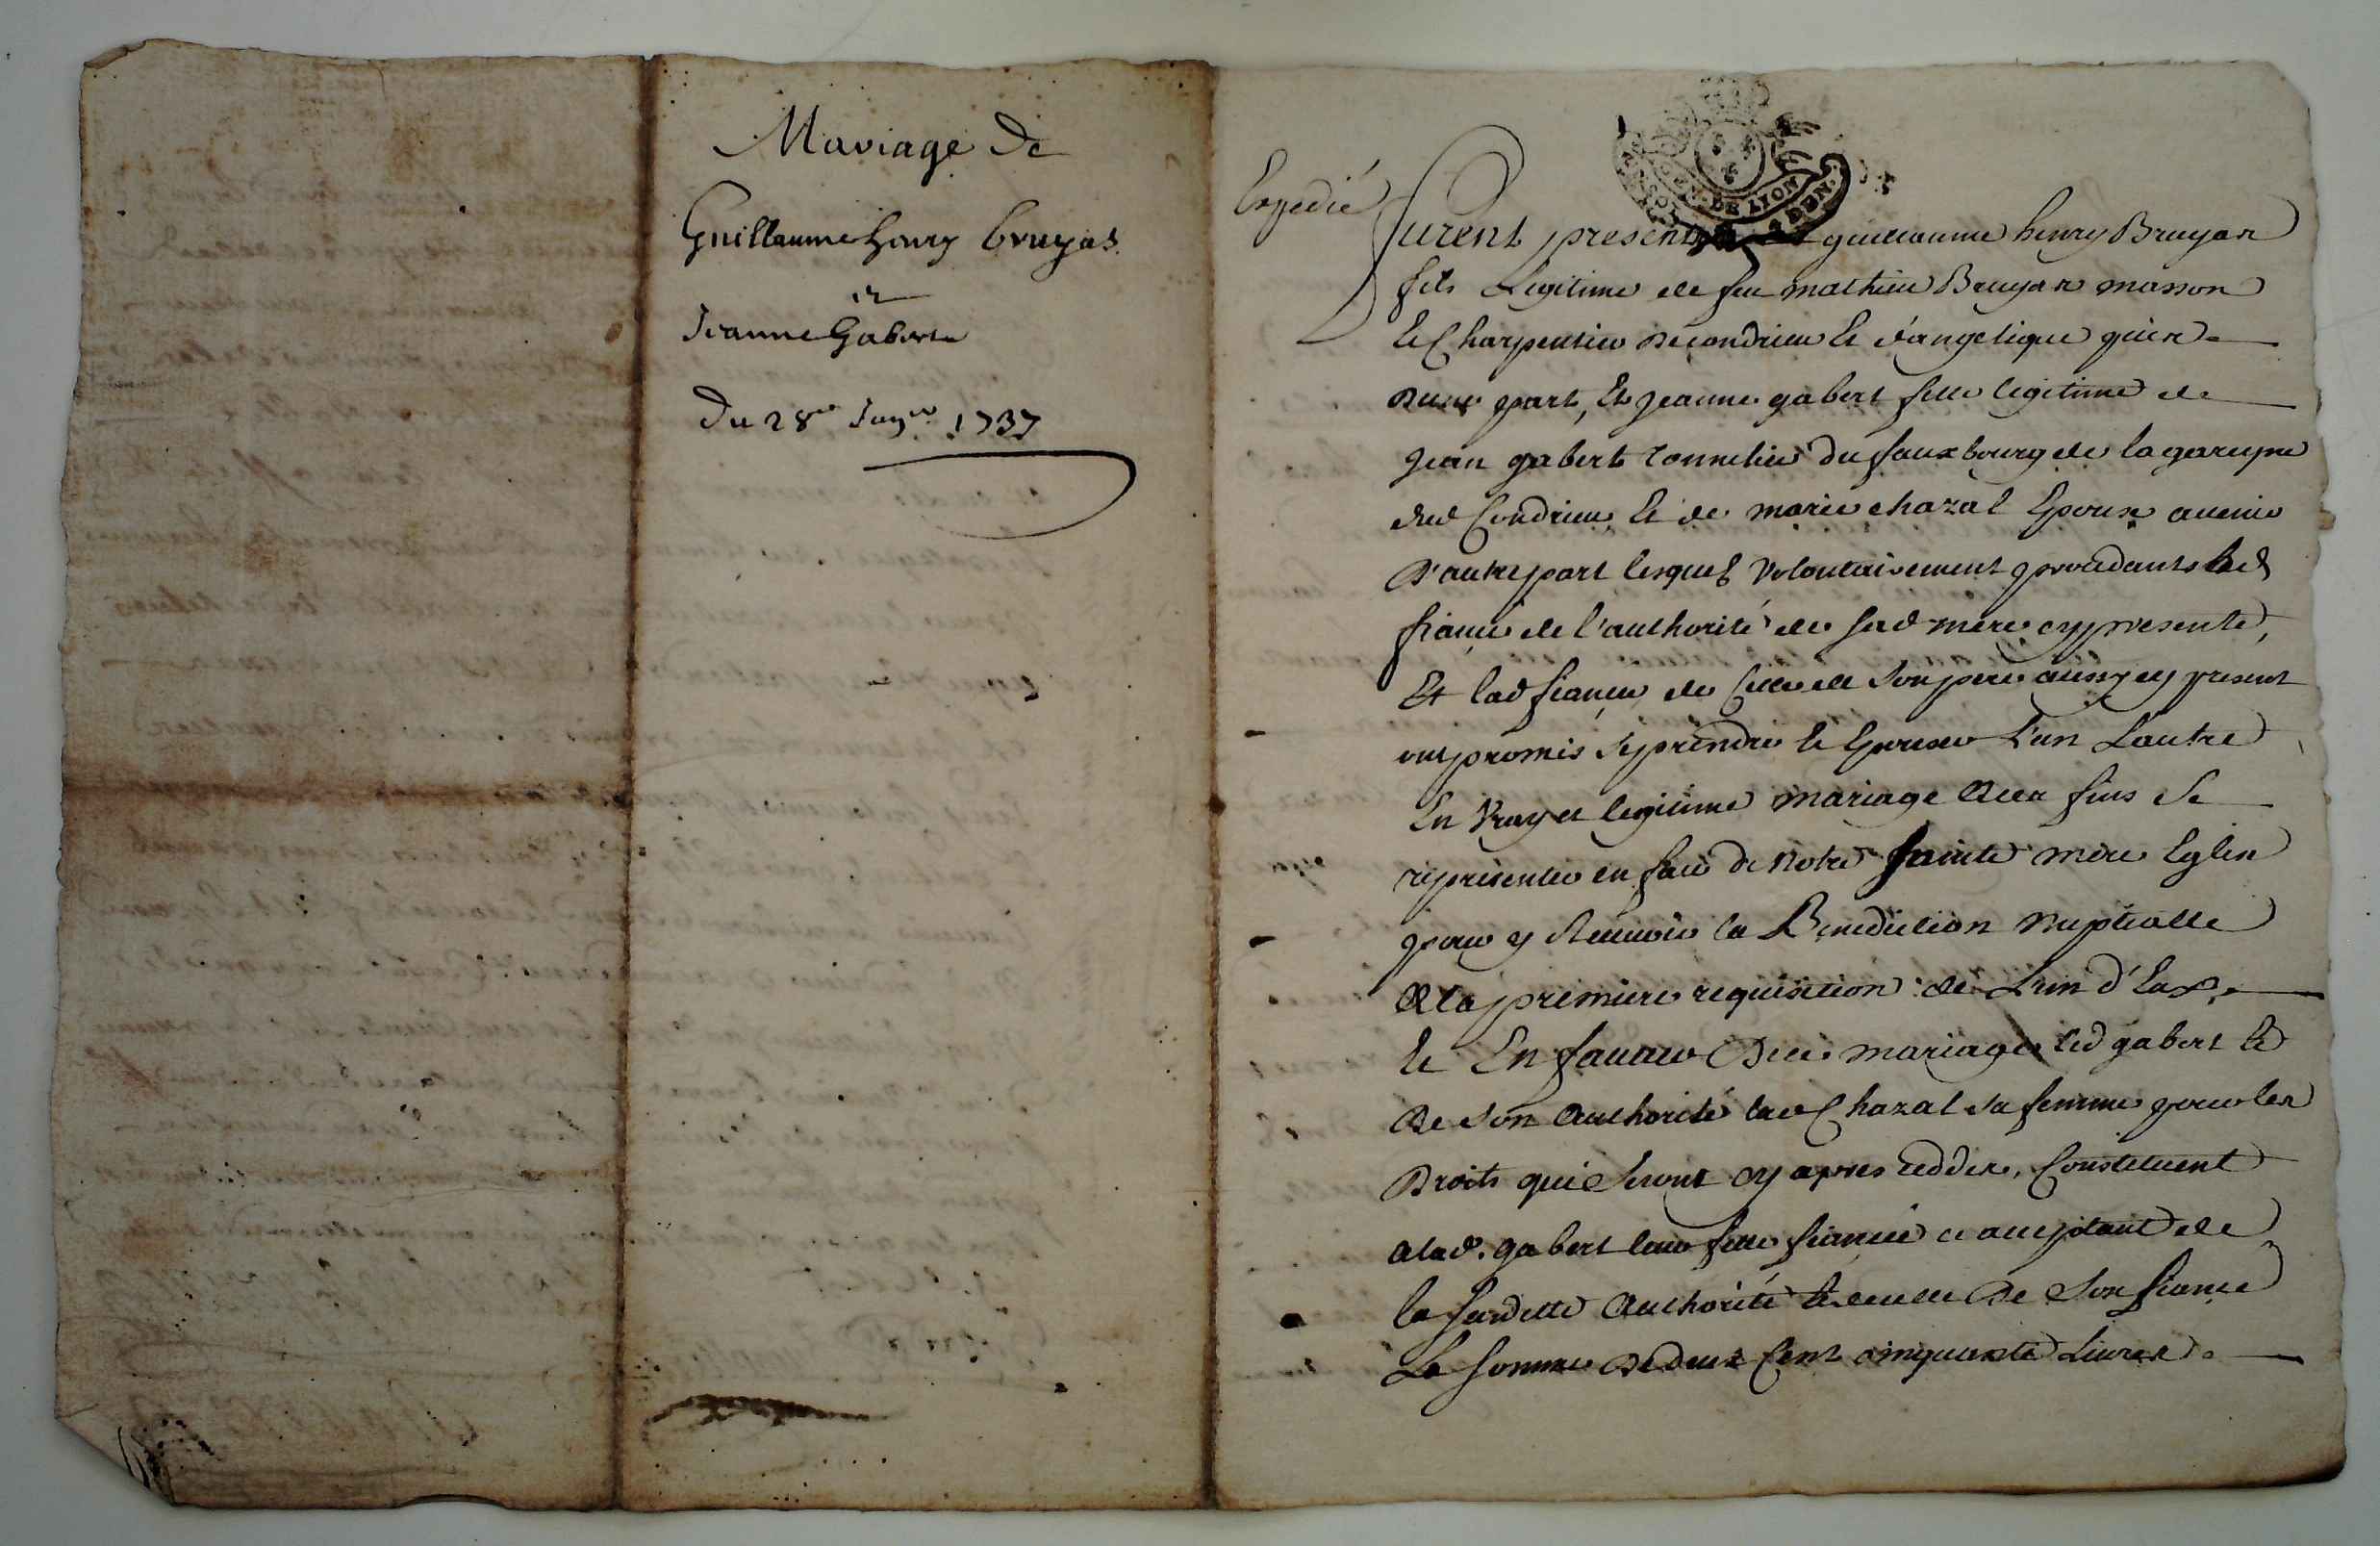 Mariage de
Guillaume henry bruyas
et
Jeanne Gabert
Du 28e Janer 1737
Expedié
GEN. DE LION
2 DEN.
furent presents guillaume henry Bruyas
fils Legitime de feu mathieu Bruyas masson
et Charpentier de condrieu et d'angelique
d'une part, Et jeanne gabert fille legitime de
jean gabert tonnelier du fauxbourg de la
dud Condrieu, et de marie chazal Epoux avenir
d'autre part lesquels volontairement procedants led
fiancé de l'authorité de sad mere cy presente,
Et lad fiancée de celle de son pere aussy cy present
ont promis se prendre et Epouser l'un L'autre
En vray et legitime mariage aux fins se
representer en face de notre sainte mere Eglise
pour y Recevoir la Benediction nuptialle
a la premiere requisition de L'un d'Eux,
et En faveur dece mariage led gabert et
de son authorité lad Chazal sa femme pour les
Droits qui seront cy apres ceddes, Constituent
a lad. gabert leur fille fiancée acceptant de
la susditte authorité et de celle de son fiancé
La somme de deux Cent cinquante Livres